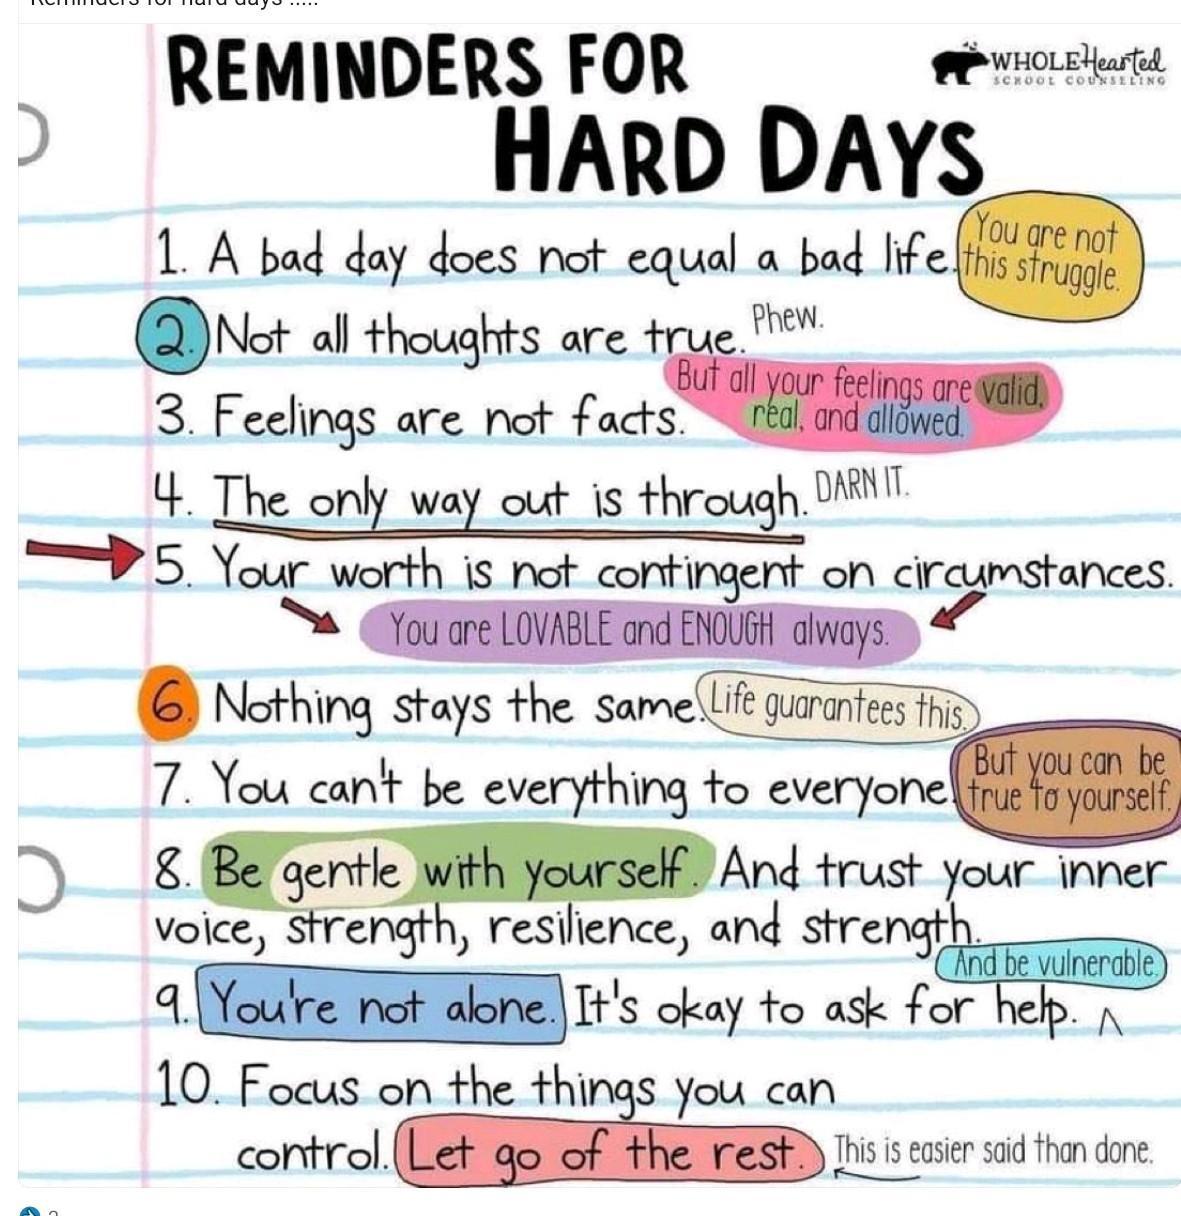 Reminders for hard days .....
REMINDERS FOR
HARD DAYS
WHOLEHearted
SCHOOL COUNSELING
1. A bad day does not equal a bad life.
You are not
this struggle.
2. Not all thoughts are true.
Phew.
3. Feelings are not facts.
But all your feelings are valid,
real, and allowed.
4. The only way out is through.
DARN IT.
5. Your worth is not contingent on circumstances.
You are LOVABLE and ENOUGH always.
6. Nothing stays the same.
Life guarantees this.
7. You can't be everything to everyone.
But you can be
true to yourself.
8. Be gentle with yourself. And trust your inner
voice, strength, resilience, and strength.
9. You're not alone. It's okay to ask for help.
And be vulnerable.
10. Focus on the things you can
control. Let go of the rest.
This is easier said than done.